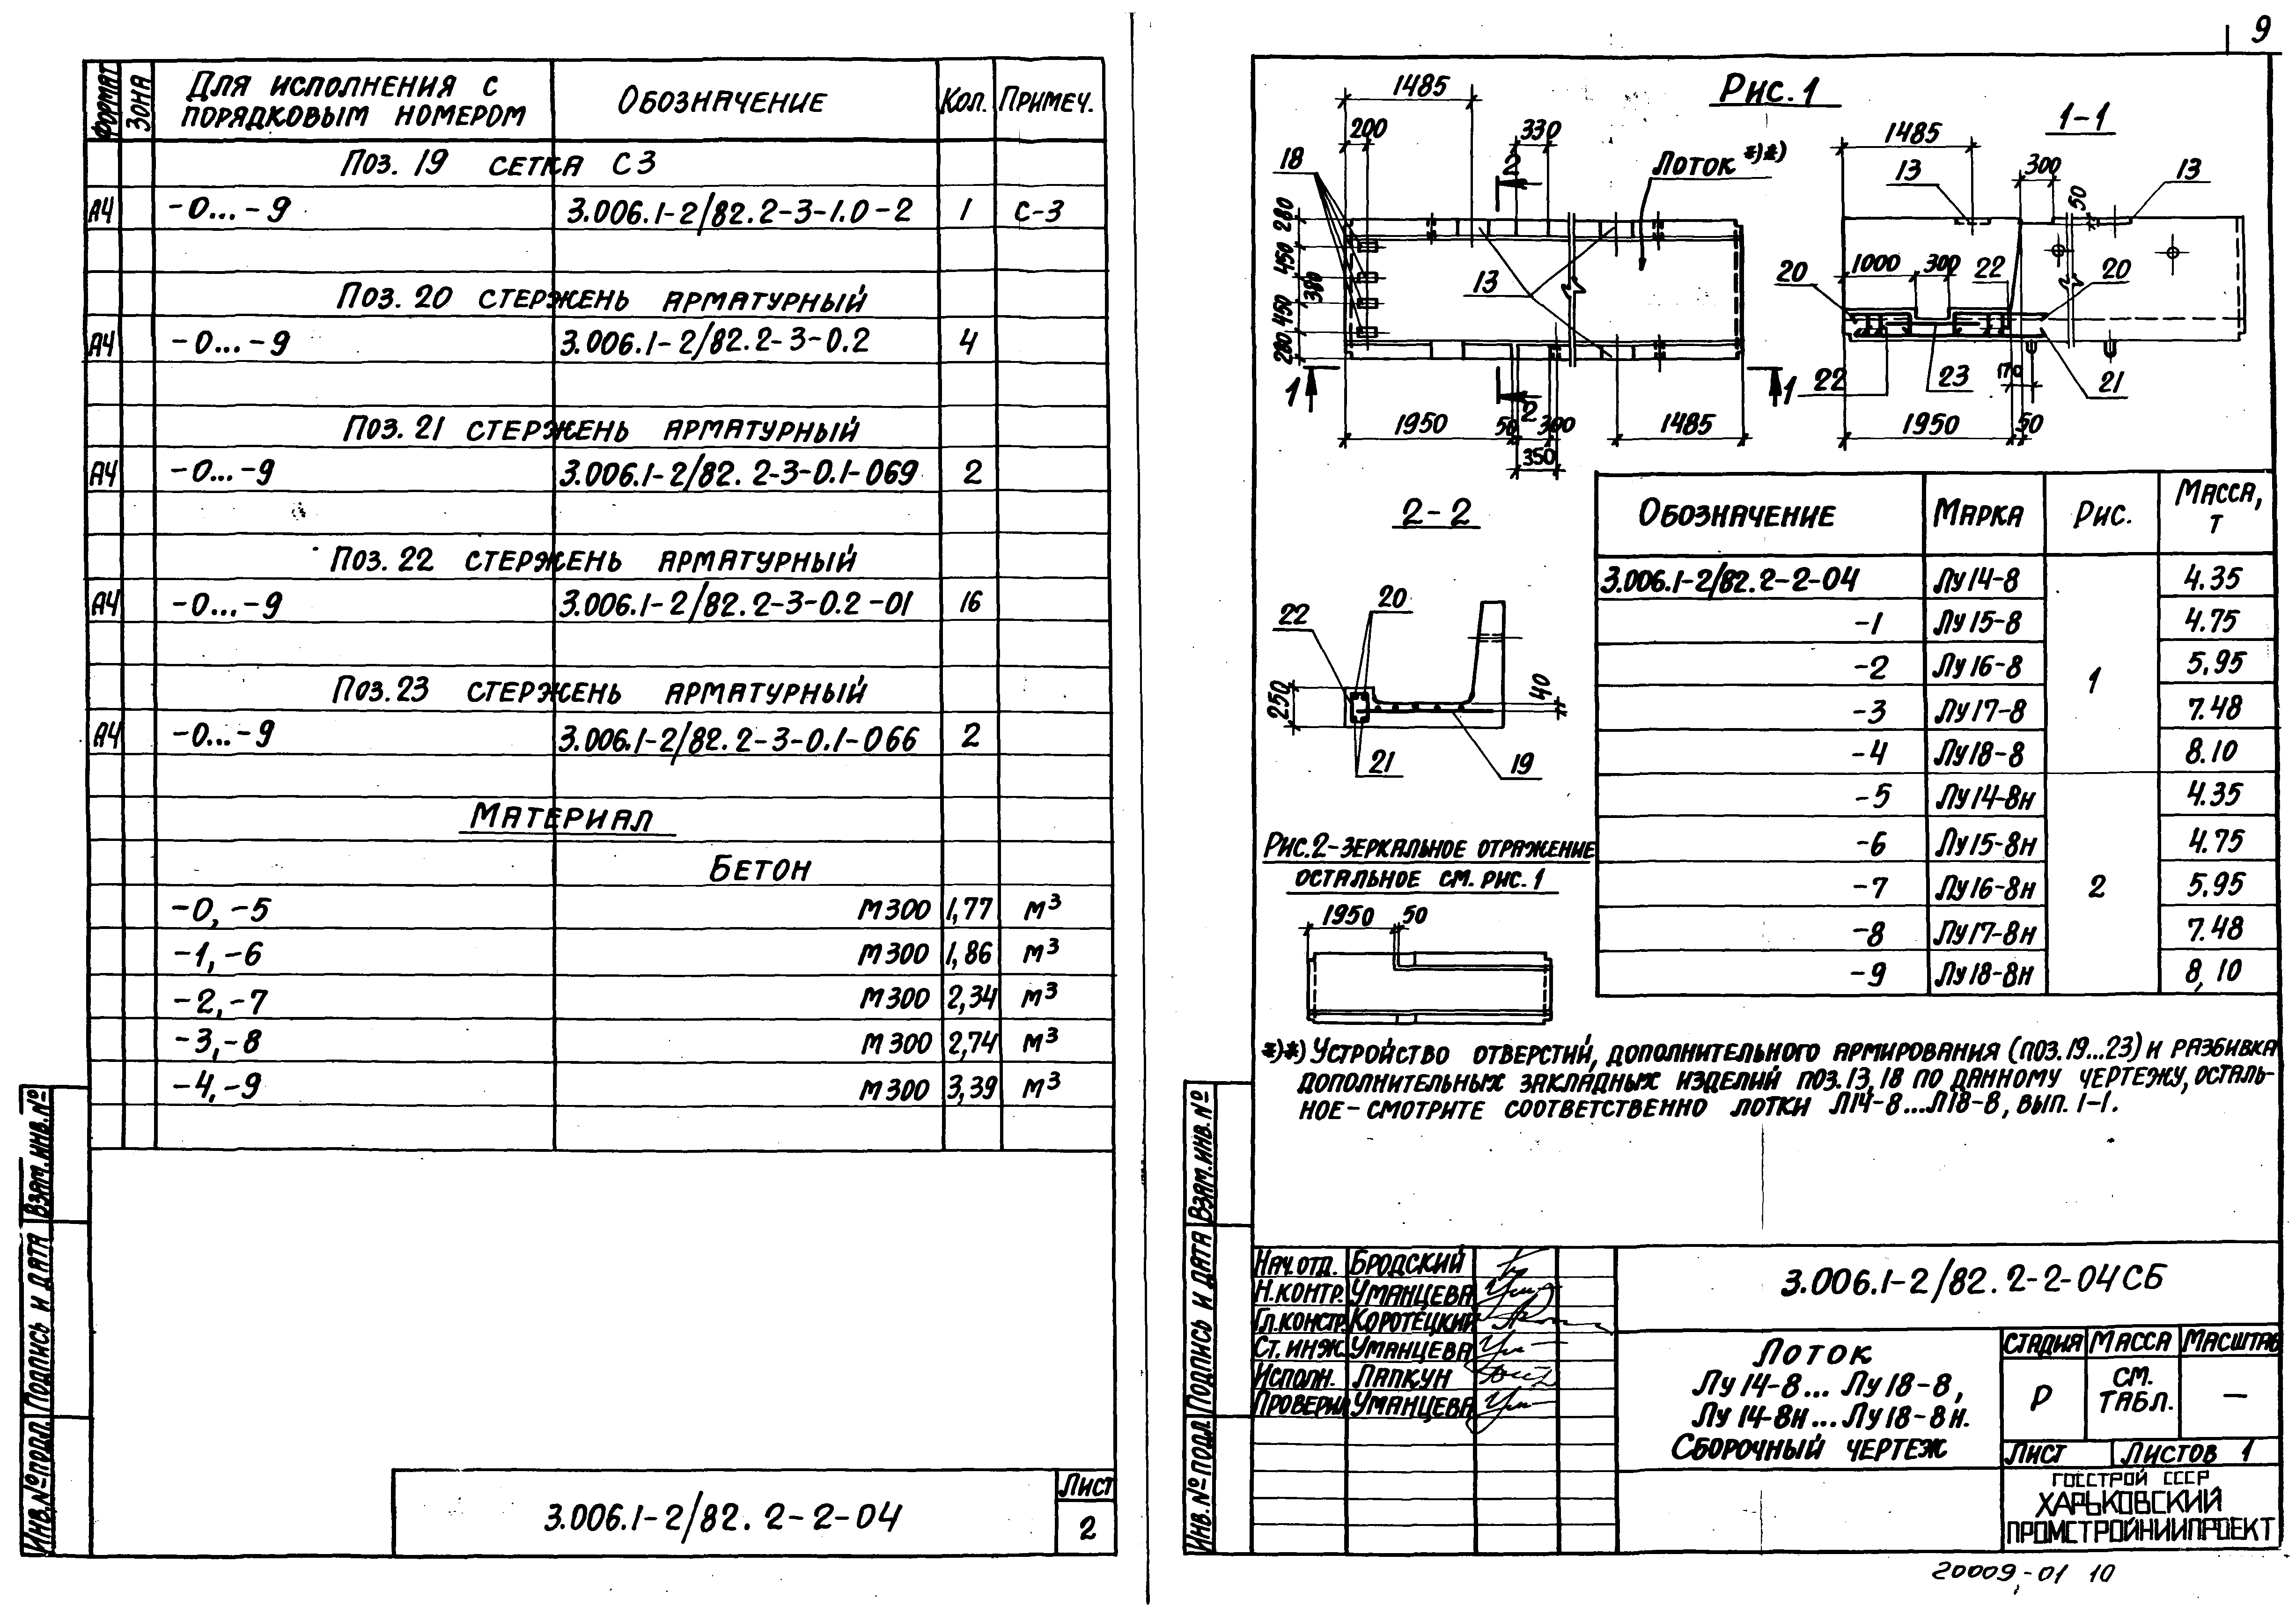 9
ФОРМАТ ЗОНА ДЛЯ ИСПОЛНЕНИЯ С ПОРЯДКОВЫМ НОМЕРОМ ОБОЗНАЧЕНИЕ КОЛ. ПРИМЕЧ.
ПОЗ. 19 СЕТКА С3
А4 -0...-9 3.006.1-2/82.2-3-1.0-2 1 С-3
ПОЗ. 20 СТЕРЖЕНЬ АРМАТУРНЫЙ
А4 -0...-9 3.006.1-2/82.2-3-0.2 4
ПОЗ. 21 СТЕРЖЕНЬ АРМАТУРНЫЙ
А4 -0...-9 3.006.1-2/82.2-3-0.1-069 2
ПОЗ. 22 СТЕРЖЕНЬ АРМАТУРНЫЙ
А4 -0...-9 3.006.1-2/82.2-3-0.2-01 16
ПОЗ. 23 СТЕРЖЕНЬ АРМАТУРНЫЙ
А4 -0...-9 3.006.1-2/82.2-3-0.1-066 2
МАТЕРИАЛ
БЕТОН
-0, -5 М300 1,77 м³
-1, -6 М300 1,86 м³
-2, -7 М300 2,34 м³
-3, -8 М300 2,74 м³
-4, -9 М300 3,39 м³
ИНВ.№ПОДЛ. ПОДПИСЬ И ДАТА ВЗАМ.ИНВ.№
3.006.1-2/82.2-2-04
ЛИСТ
2
РИС.1
1485
200
330
18
2
ЛОТОК *)*)
280
450
380
450
280
13
1
1
2
1950
50
300
350
1485
1-1
1485
13
300
50
13
20
1000
300
22
20
22
23
170
21
1950
50
2-2
22
20
250
40
21
19
РИС.2-ЗЕРКАЛЬНОЕ ОТРАЖЕНИЕ
ОСТАЛЬНОЕ СМ. РИС.1
1950
50
ОБОЗНАЧЕНИЕ МАРКА РИС. МАССА, Т
3.006.1-2/82.2-2-04 Лу14-8 4.35
-1 Лу15-8 4.75
-2 Лу16-8 1 5.95
-3 Лу17-8 7.48
-4 Лу18-8 8.10
-5 Лу14-8н 4.35
-6 Лу15-8н 4.75
-7 Лу16-8н 2 5.95
-8 Лу17-8н 7.48
-9 Лу18-8н 8,10
*)*) УСТРОЙСТВО ОТВЕРСТИЙ, ДОПОЛНИТЕЛЬНОГО АРМИРОВАНИЯ (ПОЗ.19...23) И РАЗБИВКА
ДОПОЛНИТЕЛЬНЫХ ЗАКЛАДНЫХ ИЗДЕЛИЙ ПОЗ.13,18 ПО ДАННОМУ ЧЕРТЕЖУ, ОСТАЛЬ-
НОЕ-СМОТРИТЕ СООТВЕТСТВЕННО ЛОТКИ Л14-8...Л18-8, ВЫП. 1-1.
ИНВ.№ПОДЛ. ПОДПИСЬ И ДАТА ВЗАМ.ИНВ.№
НАЧ.ОТД. БРОДСКИЙ
Н.КОНТР. УМАНЦЕВА
ГЛ.КОНСТР. КОРОТЕЦКИЙ
СТ.ИНЖ. УМАНЦЕВА
ИСПОЛН. ЛАПКУН
ПРОВЕРИЛ УМАНЦЕВА
3.006.1-2/82.2-2-04СБ
ЛОТОК
Лу14-8...Лу18-8,
Лу14-8н...Лу18-8н.
СБОРОЧНЫЙ ЧЕРТЕЖ
СТАДИЯ МАССА МАСШТАБ
Р СМ. ТАБЛ. —
ЛИСТ ЛИСТОВ 1
ГОССТРОЙ СССР
ХАРЬКОВСКИЙ
ПРОМСТРОЙНИИПРОЕКТ
20009-01 10